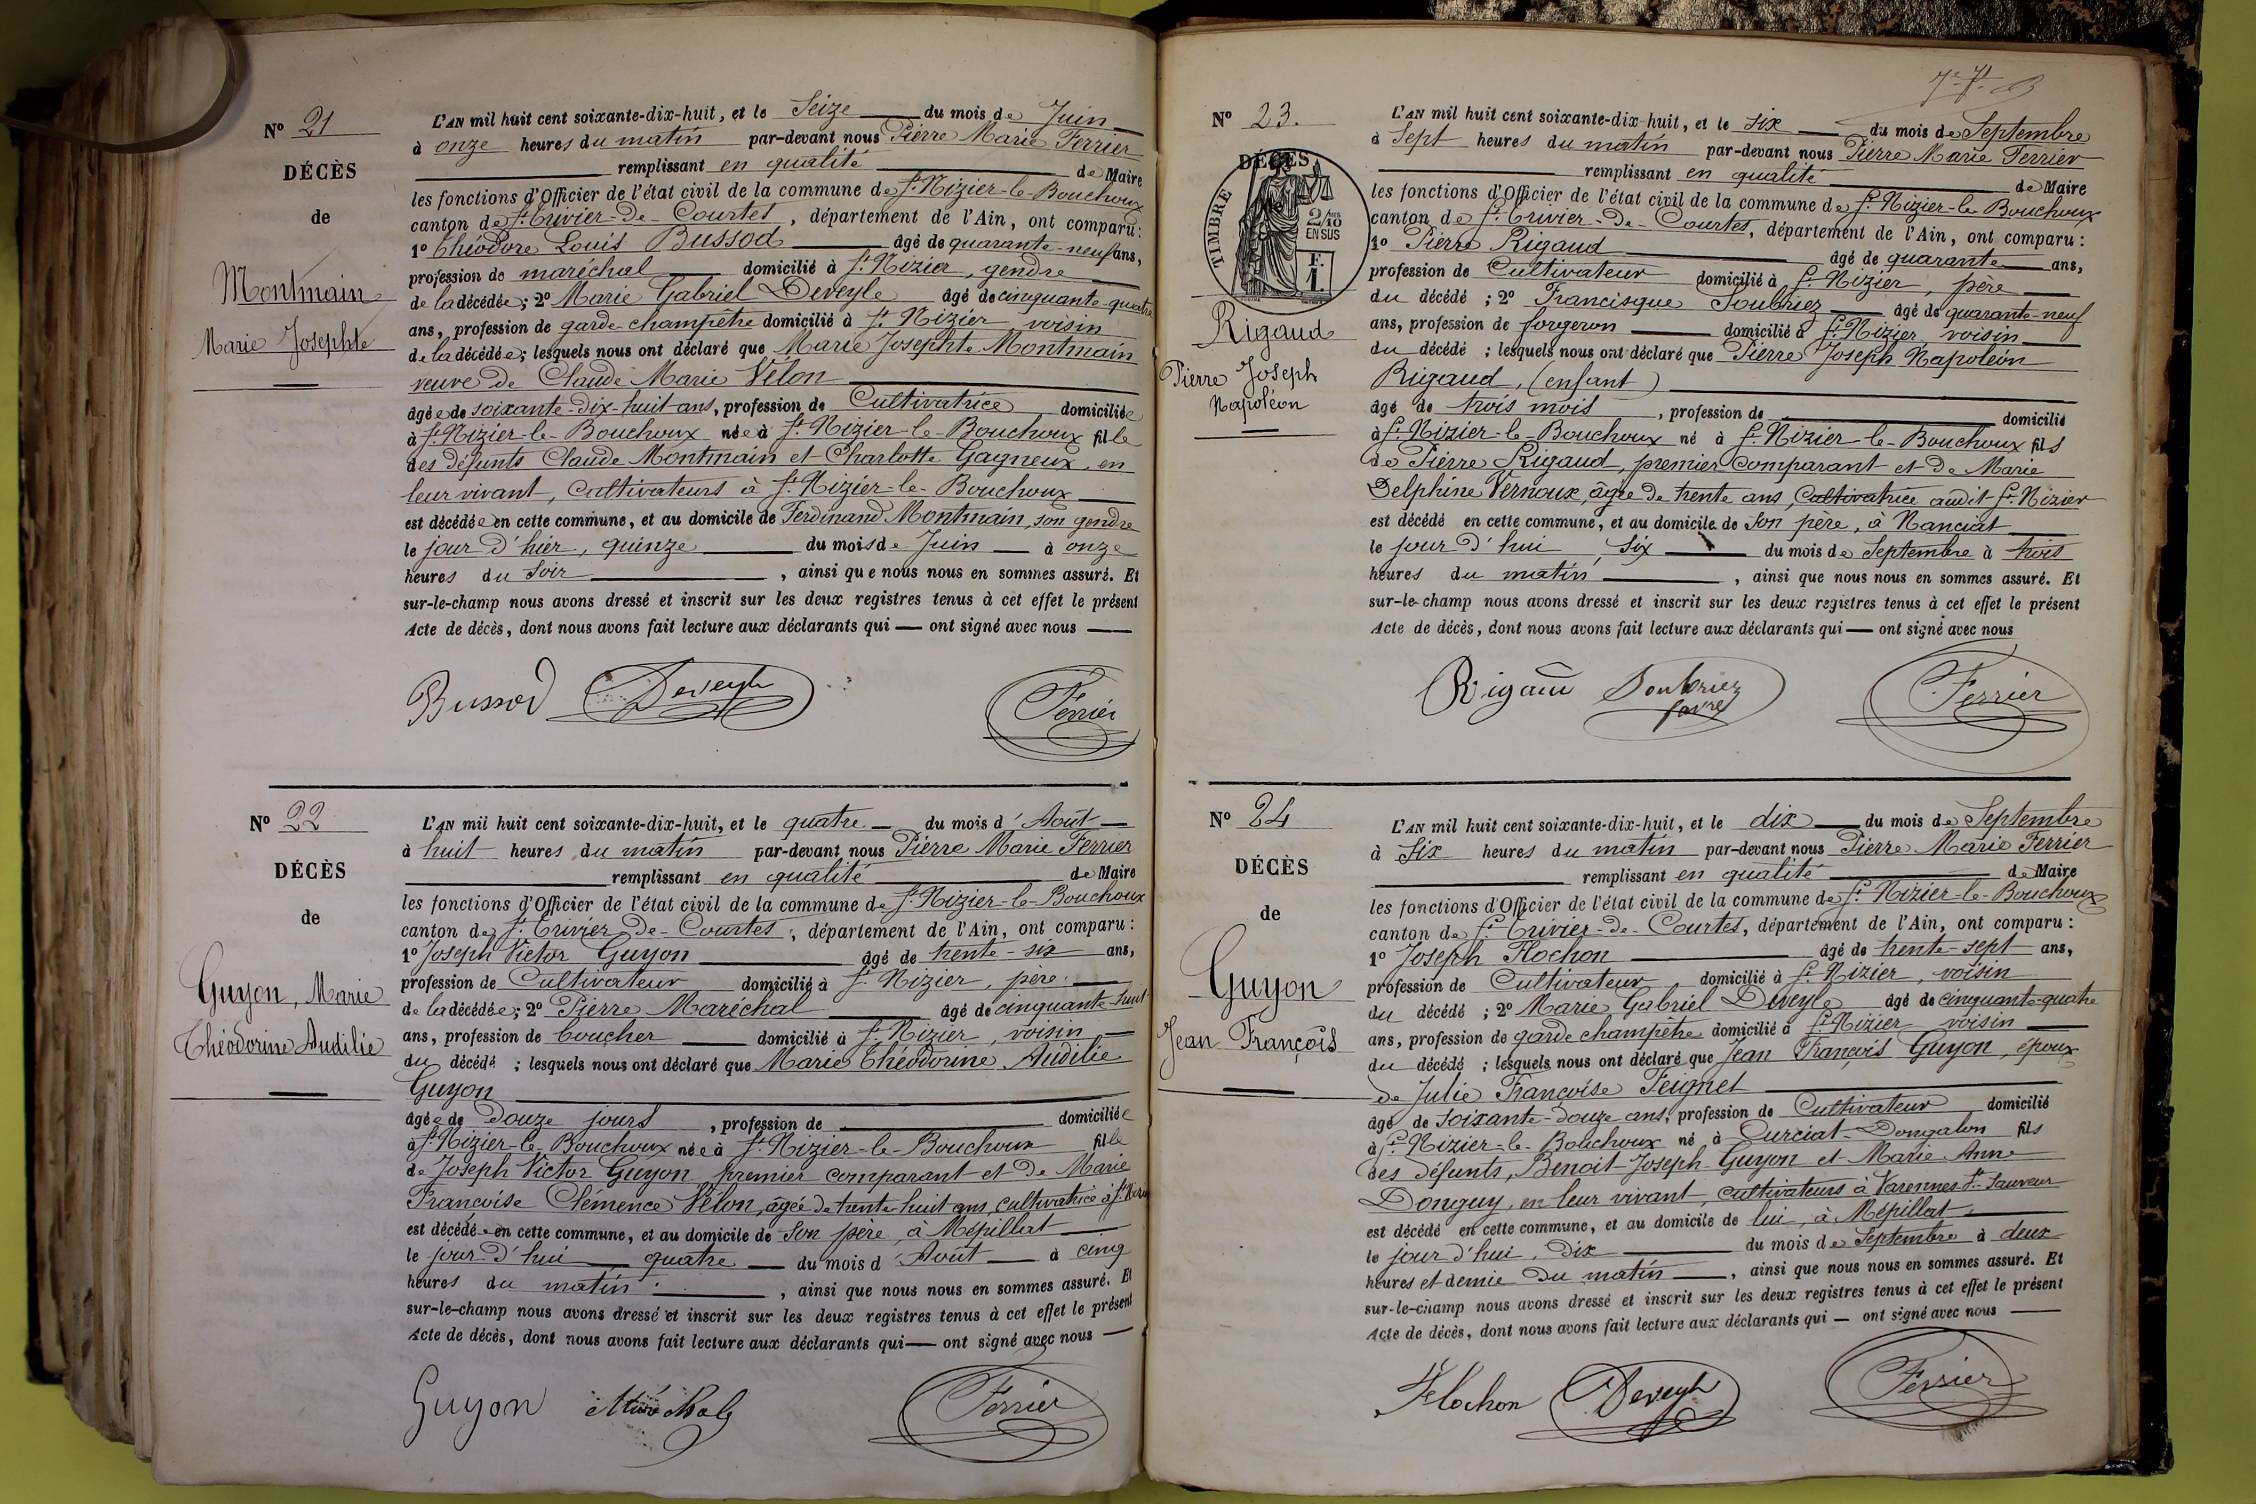 Nº 21
DÉCÈS
de
Montmain
Marie Josephte
L'AN mil huit cent soixante-dix-huit, et le Seize du mois de Juin
à onze heures du matin par-devant nous Pierre Marie Ferrier
remplissant en qualité de Maire
les fonctions d'Officier de l'état civil de la commune de St. Nizier-le-Bouchoux
canton de St. Trivier-de-Courtes, département de l'Ain, ont comparu:
1º Théodore Louis Bussod âgé de quarante-neuf ans,
profession de maréchal domicilié à St. Nizier, gendre
de la décédée; 2º Marie Gabriel Deveyle âgé de cinquante-quatre
ans, profession de garde-champêtre domicilié à St. Nizier voisin
de la décédée; lesquels nous ont déclaré que Marie Josephte Montmain
veuve de Claude Marie Vélon
âgée de soixante-dix-huit ans, profession de Cultivatrice domiciliée
à St. Nizier-le-Bouchoux née à St. Nizier-le-Bouchoux fille
des défunts Claude Montmain et Charlotte Gagneux, en
leur vivant, Cultivateurs à St. Nizier-le-Bouchoux
est décédée en cette commune, et au domicile de Ferdinand Montmain, son gendre
le jour d'hier, quinze du mois de Juin à onze
heures du soir, ainsi que nous nous en sommes assuré. Et
sur-le-champ nous avons dressé et inscrit sur les deux registres tenus à cet effet le présent
Acte de décès, dont nous avons fait lecture aux déclarants qui — ont signé avec nous —
Bussod Deveyle Ferrier
Nº 22
DÉCÈS
de
Guyon, Marie
Théodorine Audilie
L'AN mil huit cent soixante-dix-huit, et le quatre du mois d'Août
à huit heures du matin par-devant nous Pierre Marie Ferrier
remplissant en qualité de Maire
les fonctions d'Officier de l'état civil de la commune de St. Nizier-le-Bouchoux
canton de St. Trivier-de-Courtes, département de l'Ain, ont comparu:
1º Joseph Victor Guyon âgé de trente-six ans,
profession de Cultivateur domicilié à St. Nizier, père
de la décédée; 2º Pierre Maréchal âgé de cinquante-huit
ans, profession de boucher domicilié à St. Nizier, voisin
du décédé; lesquels nous ont déclaré que Marie Théodorine Audilie
Guyon
âgée de douze jours, profession de domiciliée
à St. Nizier-le-Bouchoux née à St. Nizier-le-Bouchoux fille
de Joseph Victor Guyon premier comparant et de Marie
Françoise Clémence Vélon, âgée de trente-huit ans, cultivatrice à St. Nizier
est décédée en cette commune, et au domicile de son père, à Mépillat
le jour d'hui quatre du mois d'Août à cinq
heures du matin, ainsi que nous nous en sommes assuré. Et
sur-le-champ nous avons dressé et inscrit sur les deux registres tenus à cet effet le présent
Acte de décès, dont nous avons fait lecture aux déclarants qui — ont signé avec nous —
Guyon Maréchal Ferrier
Nº 23.
DÉCÈS
TIMBRE
2/10
EN SUS
F.
1.
Rigaud
Pierre Joseph
Napoléon
L'AN mil huit cent soixante-dix-huit, et le six du mois de Septembre
à Sept heures du matin par-devant nous Pierre Marie Ferrier
remplissant en qualité de Maire
les fonctions d'Officier de l'état civil de la commune de St. Nizier-le-Bouchoux
canton de St. Trivier-de-Courtes, département de l'Ain, ont comparu:
1º Pierre Rigaud âgé de quarante ans,
profession de Cultivateur domicilié à St. Nizier, père
du décédé; 2º Francisque Soubriez âgé de quarante-neuf
ans, profession de forgeron domicilié à St. Nizier, voisin
du décédé; lesquels nous ont déclaré que Pierre Joseph Napoléon
Rigaud, (enfant)
âgé de trois mois, profession de domicilié
à St. Nizier-le-Bouchoux né à St. Nizier-le-Bouchoux fils
de Pierre Rigaud, premier comparant et de Marie
Delphine Vernoux, âgée de trente ans, Cultivatrice audit St. Nizier
est décédé en cette commune, et au domicile de son père, à Nanciat
le jour d'hui, six du mois de Septembre à trois
heures du matin, ainsi que nous nous en sommes assuré. Et
sur-le-champ nous avons dressé et inscrit sur les deux registres tenus à cet effet le présent
Acte de décès, dont nous avons fait lecture aux déclarants qui — ont signé avec nous
Rigaud Soubriez Ferrier
Nº 24
DÉCÈS
de
Guyon
Jean François
L'AN mil huit cent soixante-dix-huit, et le dix du mois de Septembre
à six heures du matin par-devant nous Pierre Marie Ferrier
remplissant en qualité de Maire
les fonctions d'Officier de l'état civil de la commune de St. Nizier-le-Bouchoux
canton de St. Trivier-de-Courtes, département de l'Ain, ont comparu:
1º Joseph Flochon âgé de trente-sept ans,
profession de Cultivateur domicilié à St. Nizier, voisin
du décédé; 2º Marie Gabriel Deveyle âgé de cinquante-quatre
ans, profession de garde champêtre domicilié à St. Nizier voisin
du décédé; lesquels nous ont déclaré que Jean François Guyon, époux
de Julie Françoise Feignet
âgé de soixante-douze ans, profession de Cultivateur domicilié
à St. Nizier-le-Bouchoux né à Curciat-Dongalon fils
des défunts, Benoit-Joseph Guyon et Marie Anne
Donguy, en leur vivant, cultivateurs à Varennes-St-Sauveur
est décédé en cette commune, et au domicile de lui, à Mépillat
le jour d'hui, dix du mois de Septembre à deux
heures et demie du matin, ainsi que nous nous en sommes assuré. Et
sur-le-champ nous avons dressé et inscrit sur les deux registres tenus à cet effet le présent
Acte de décès, dont nous avons fait lecture aux déclarants qui — ont signé avec nous —
Flochon Deveyle Ferrier